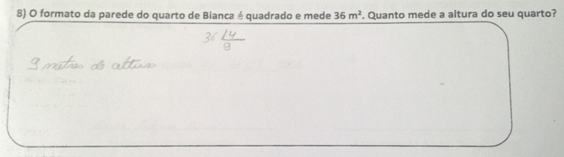 8) O formato da parede do quarto de Bianca é quadrado e mede 36 m². Quanto mede a altura do seu quarto?
36 |4
9
9 metros de altura